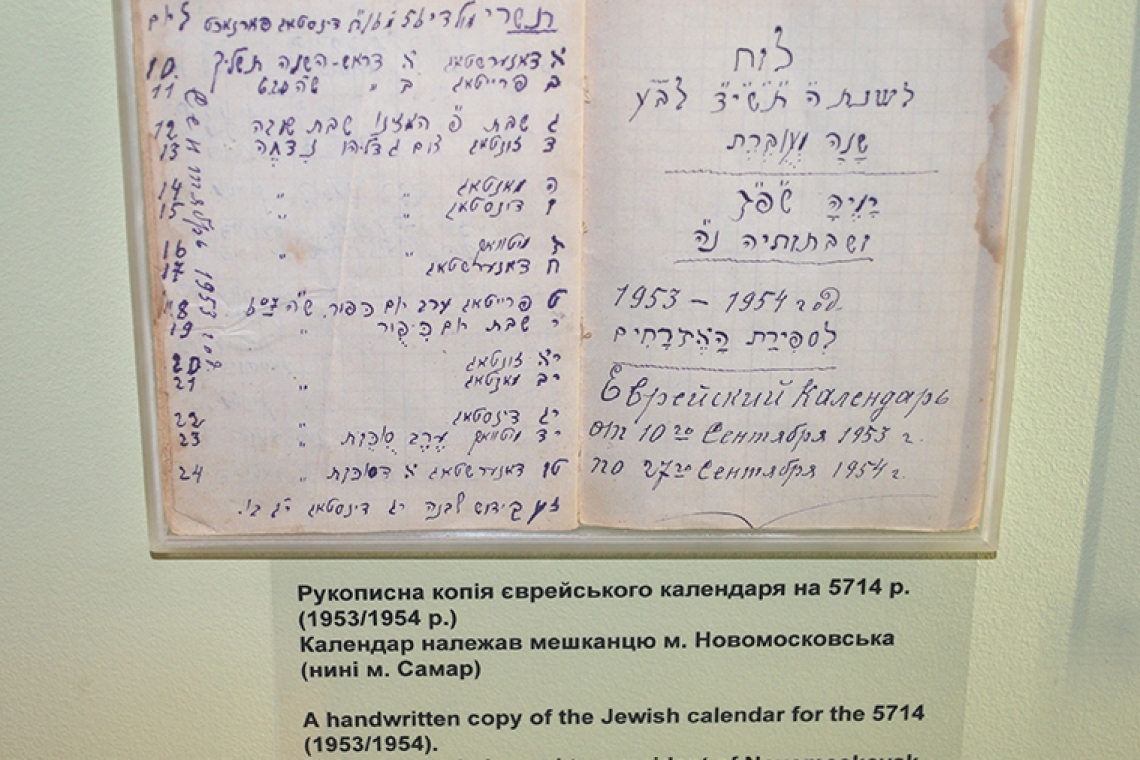 לוח
לשנת ה'תשי"ד לבע
שנה מעוברת
ימיה שפ"ג
ושבתותיה נ"ה
1953 – 1954 год.
לספירת האזרחים
Еврейский Календарь
от 10го Сентября 1953 г.
по 27го Сентября 1954 г.
תשרי
10. א דאנערשטאג א דראש-השנה תשליך
11 ב פרייטאג ב "
12 ג שבת פ' האזינו שבת שובה
13 ד זונטאג צום גדליהו נדחה
14 ה מאנטאג " "
15 ו דינסטאג " "
16 ז מיטוואך " "
17 ח דאנערשטאג
18 ט פרייטאג ערב יום כיפור
19 י שבת יום כיפור "
20 יא זונטאג
21 יב מאנטאג "
22 יג דינסטאג
23 יד מיטוואך ערב סוכות "
24 טו דאנערשטאג א דסוכות "
קידוש לבנה יג דינסטאג
Сентябрь 1953 год
Рукописна копія єврейського календаря на 5714 р.
(1953/1954 р.)
Календар належав мешканцю м. Новомосковська
(нині м. Самар)
A handwritten copy of the Jewish calendar for the 5714
(1953/1954).